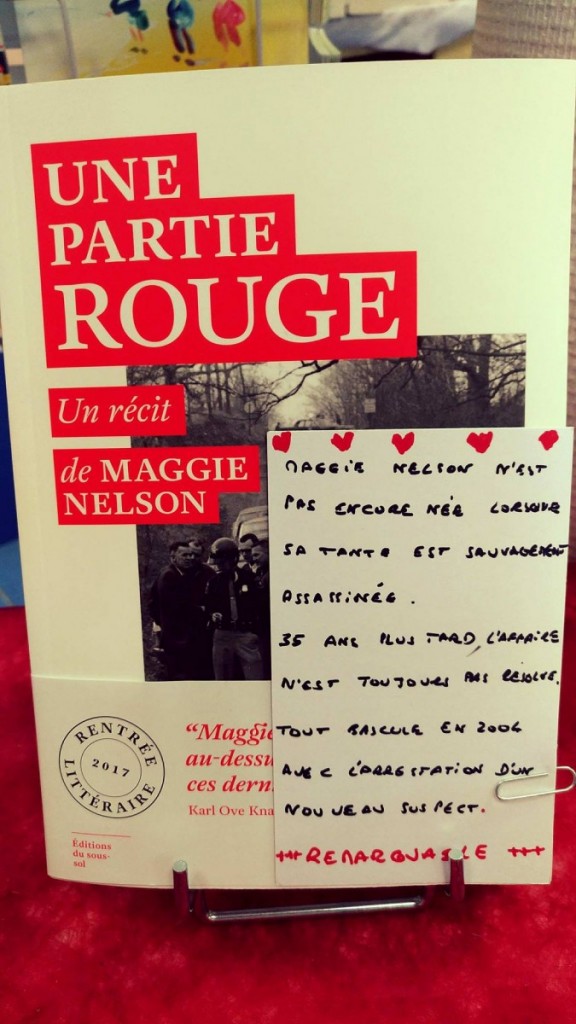 UNE
PARTIE
ROUGE
Un récit
de MAGGIE
NELSON
MAGGIE NELSON N'EST
PAS ENCORE NÉE LORSQUE
SA TANTE EST SAUVAGEMENT
ASSASSINÉE.
35 ANS PLUS TARD L'AFFAIRE
N'EST TOUJOURS PAS RÉSOLUE.
TOUT BASCULE EN 2004
AVEC L'ARRESTATION D'UN
NOUVEAU SUSPECT.
+++ REMARQUABLE +++
RENTRÉE
2017
LITTÉRAIRE
“Maggie
au-dessu
ces dern
Karl Ove Kna
Éditions
du sous-
sol